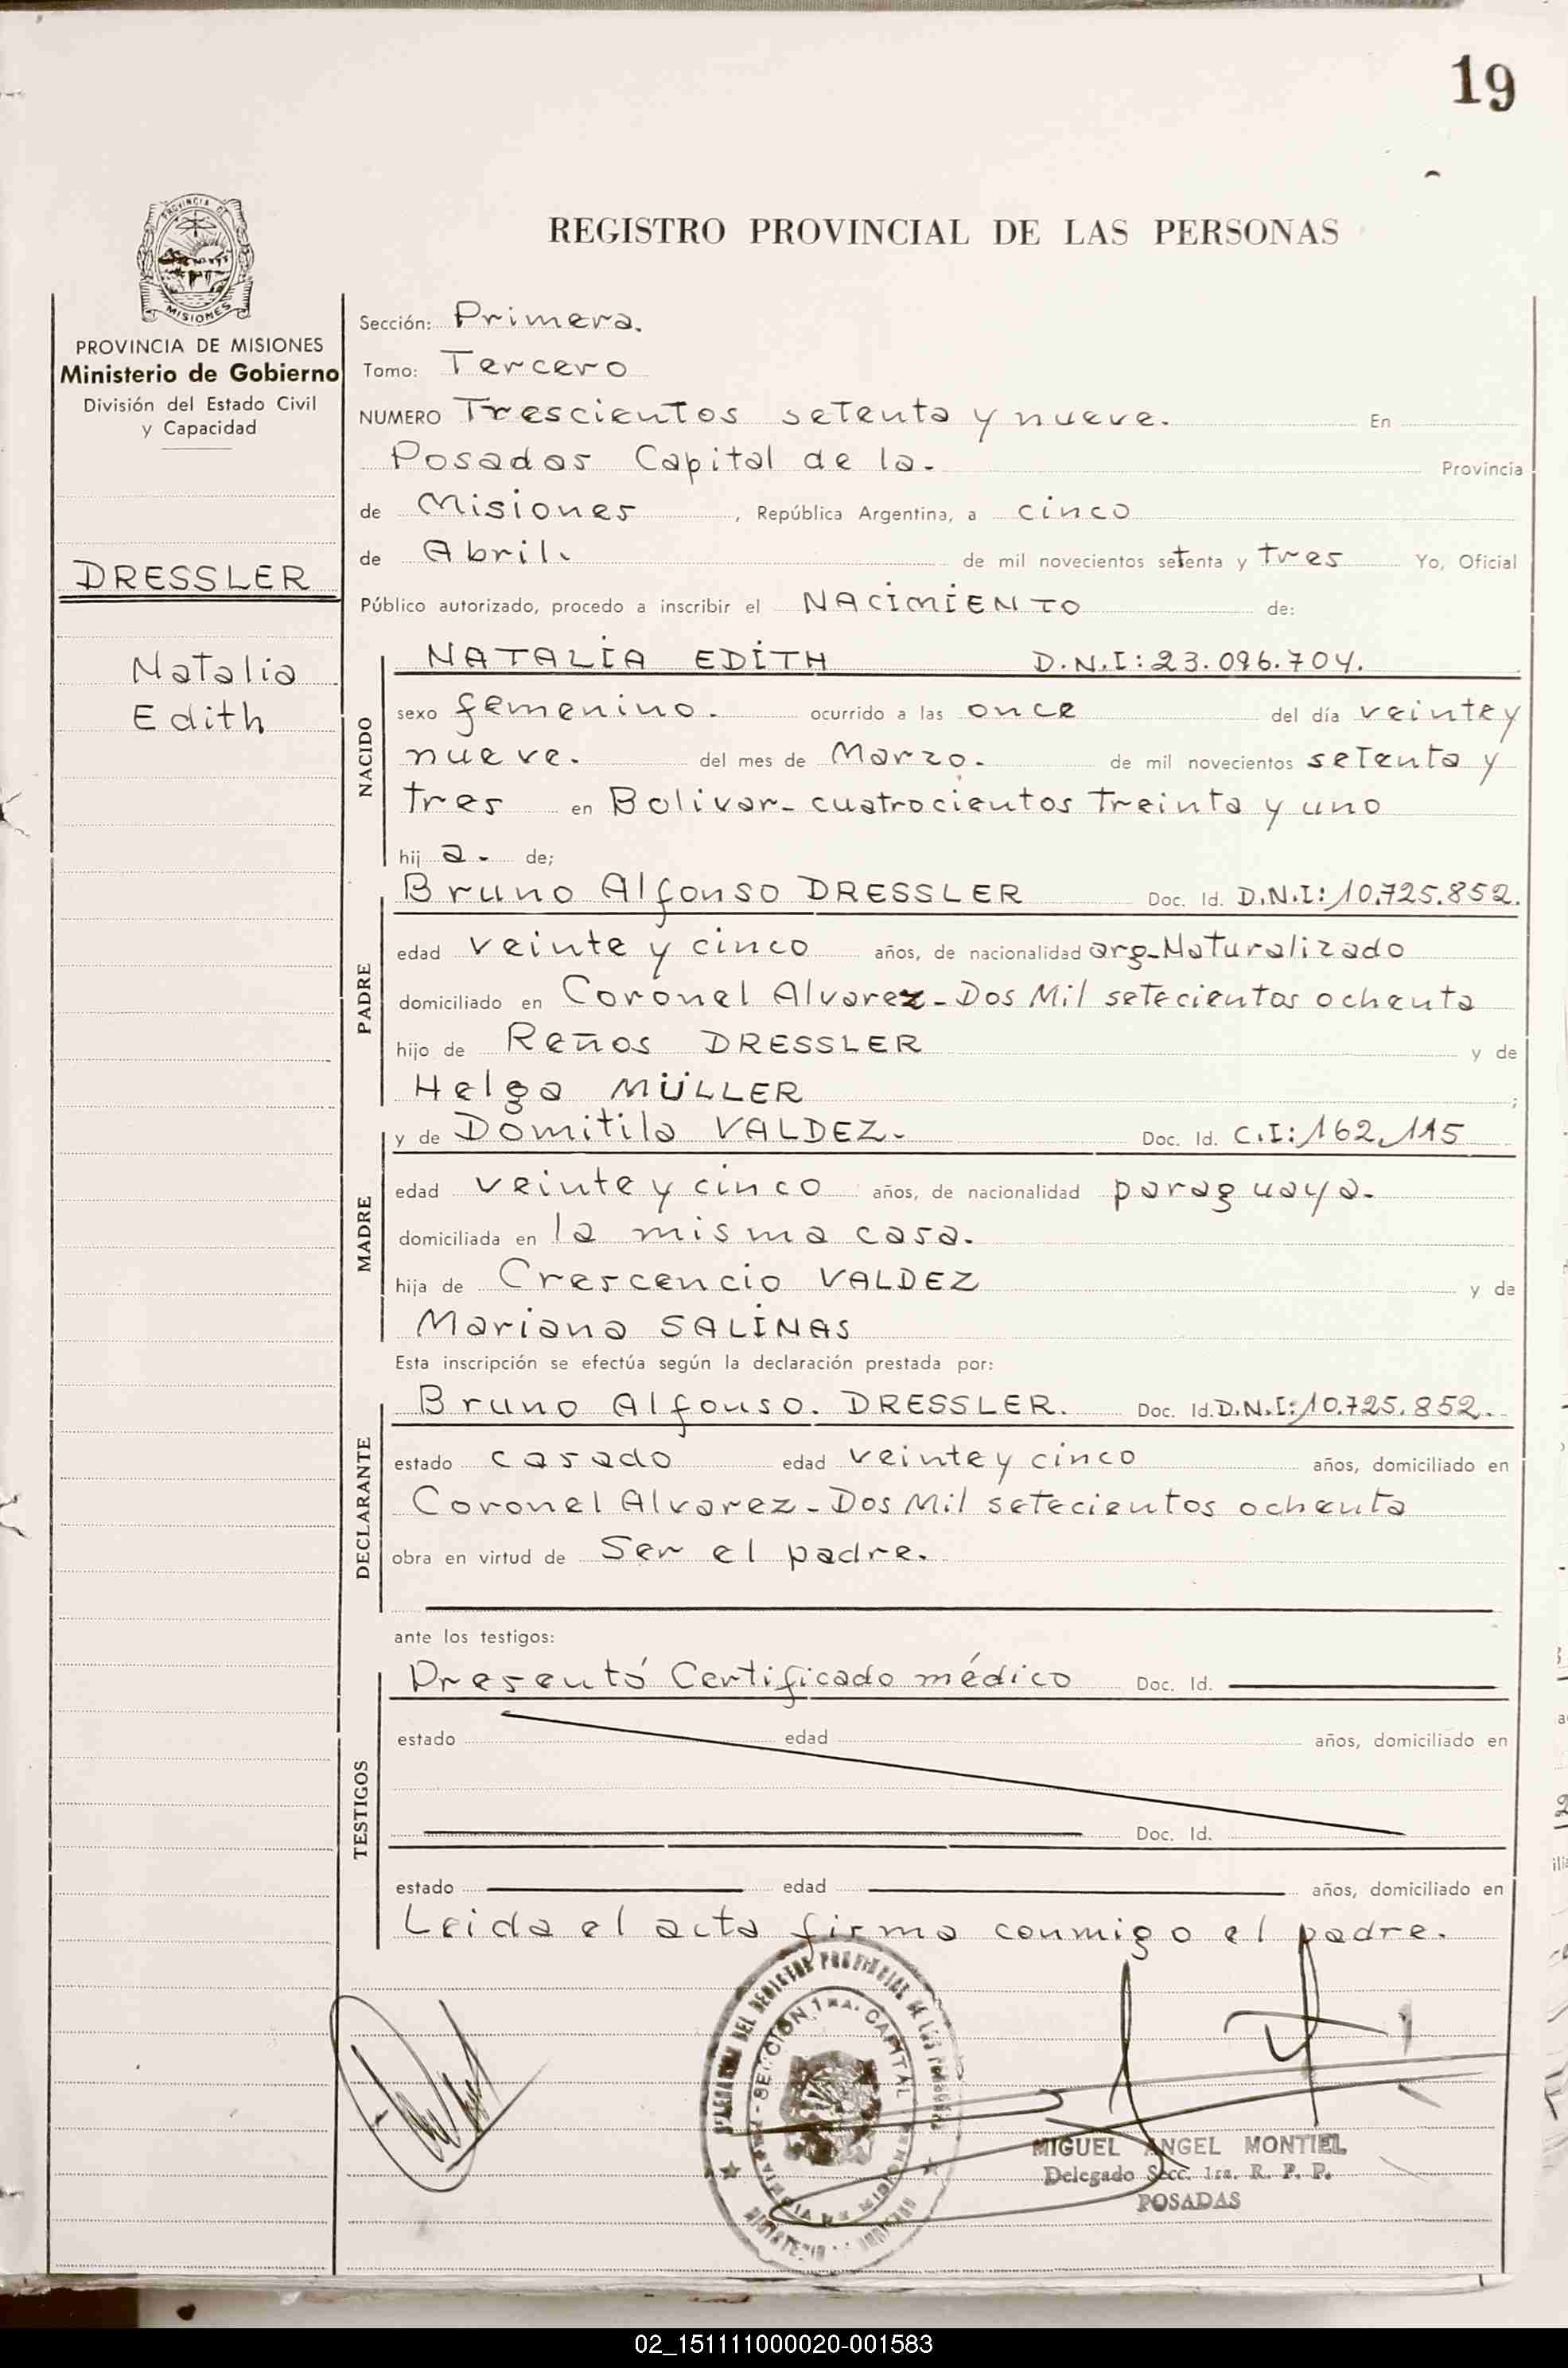 19
PROVINCIA DE
MISIONES
REGISTRO PROVINCIAL DE LAS PERSONAS
PROVINCIA DE MISIONES
Ministerio de Gobierno
División del Estado Civil
y Capacidad
DRESSLER
Natalia
Edith
Sección: Primera.
Tomo: Tercero
NUMERO Trescientos setenta y nueve. En
Posadas Capital de la. Provincia
de Misiones, República Argentina, a cinco
de Abril. de mil novecientos setenta y tres Yo, Oficial
Público autorizado, procedo a inscribir el NACIMIENTO de:
NACIDO
NATALIA EDITH D.N.I: 23.096.704.
sexo femenino. ocurrido a las once del día veinte y
nueve. del mes de Marzo. de mil novecientos setenta y
tres en Bolivar- cuatrocientos treinta y uno
hij a. de;
PADRE
Bruno Alfonso DRESSLER Doc. Id. D.N.I: 10.725.852.
edad veinte y cinco años, de nacionalidad arg-Naturalizado
domiciliado en Coronel Alvarez- Dos Mil setecientos ochenta
hijo de Reños DRESSLER y de
Helga MÜLLER ;
MADRE
y de Domitila VALDEZ. Doc. Id. C.I: 162.115
edad veinte y cinco años, de nacionalidad paraguaya.
domiciliada en la misma casa.
hija de Crescencio VALDEZ y de
Mariana SALINAS
Esta inscripción se efectúa según la declaración prestada por:
DECLARANTE
Bruno Alfonso. DRESSLER. Doc. Id. D.N.I: 10.725.852.
estado casado edad veinte y cinco años, domiciliado en
Coronel Alvarez- Dos Mil setecientos ochenta
obra en virtud de Ser el padre.
ante los testigos:
TESTIGOS
Presentó Certificado médico Doc. Id.
estado edad años, domiciliado en
Doc. Id.
estado edad años, domiciliado en
Leida el acta firma conmigo el padre.
SECCION 1ra. CAPITAL
MIGUEL ANGEL MONTIEL
Delegado Secc. 1ra. R. P. P.
POSADAS
02_151111000020-001583